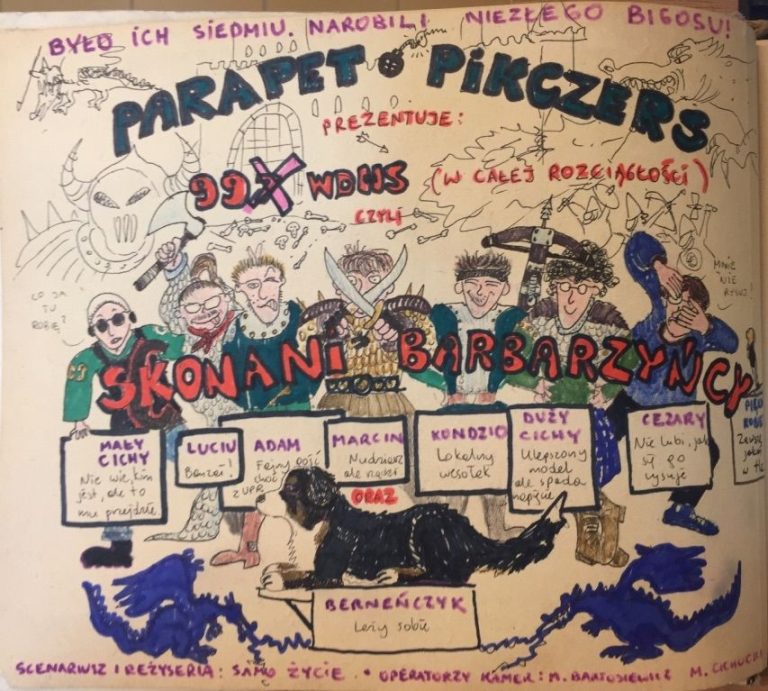 BYŁO ICH SIEDMIU. NAROBILI NIEZŁEGO BIGOSU!
PARAPET PIKCZERS
PREZENTUJE:
99 X WDHS (W CAŁEJ ROZCIĄGŁOŚCI)
CZYLI
CO JA
TU
ROBIĘ?
MNIE
NIE
RYSUJ!
SKONANI BARBARZYŃCY
MAŁY
CICHY
Nie wie, kim
jest, ale to
mu przejdzie
LUCIU
Banzai!
ADAM
Fajny gość
choć
z UPR
MARCIN
Nudziarz
ale rządzi
KONDZIO
Lokalny
wesołek
DUŻY
CICHY
Ulepszony
model
ale spada
napięcie
CEZARY
Nie lubi, jak
się go
rysuje
Zawsze
jakoś
w tle
ORAZ
BERNEŃCZYK
Leży sobie
SCENARIUSZ I REŻYSERIA: SAMO ŻYCIE • OPERATORZY KAMER: M. BARTOSIEWICZ M. CICHOCKI